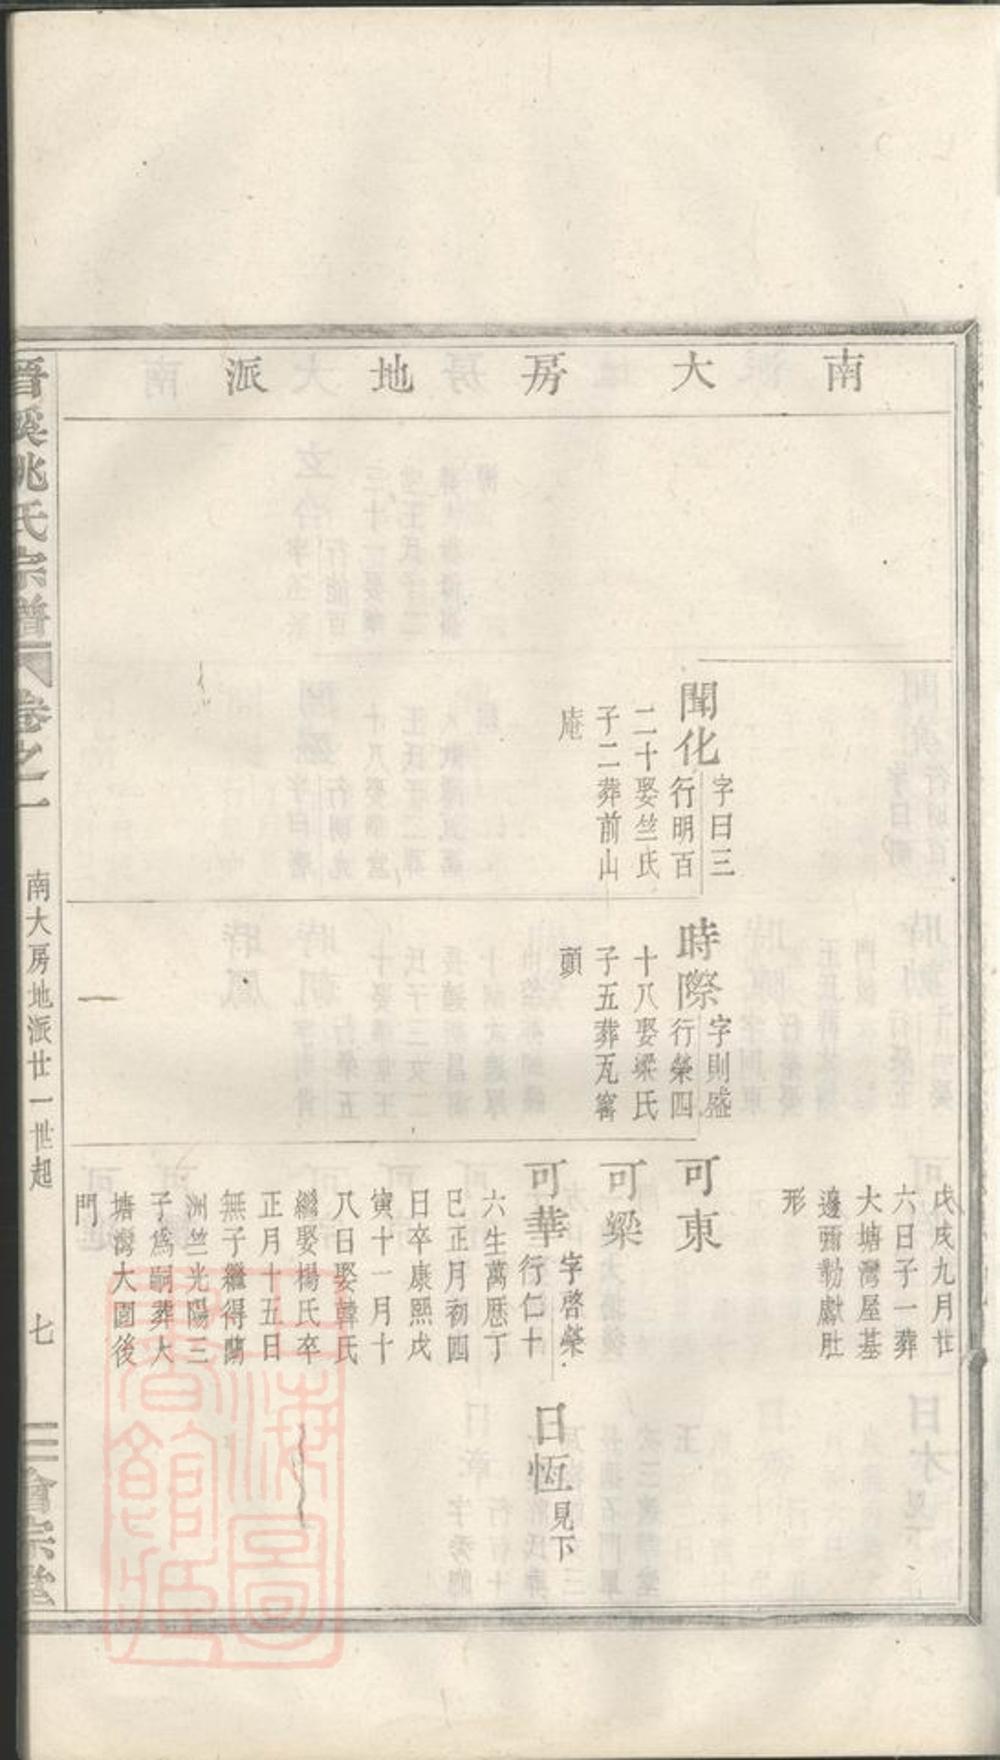 南大房地派
聞化
字日三
行明百
二十娶竺氏
子二葬前山
庵
時際
字則盛
行榮四
十八娶梁氏
子五葬瓦窰
頭
戊戌九月廿
六日子一葬
大塘灣屋基
邊
形
可東
可梁
可華
字啓榮
行仁十
六生萬曆丁
巳正月初四
日卒康熙戊
寅十一月十
八日娶韓氏
繼娶楊氏卒
正月十五日
無子繼得蘭
洲竺光陽三
子爲嗣葬大
塘灣大園後
門
日恆
見下
晋溪姚氏宗譜
卷之一
南大房地派廿一世起
七
會宗堂
上海圖書館藏